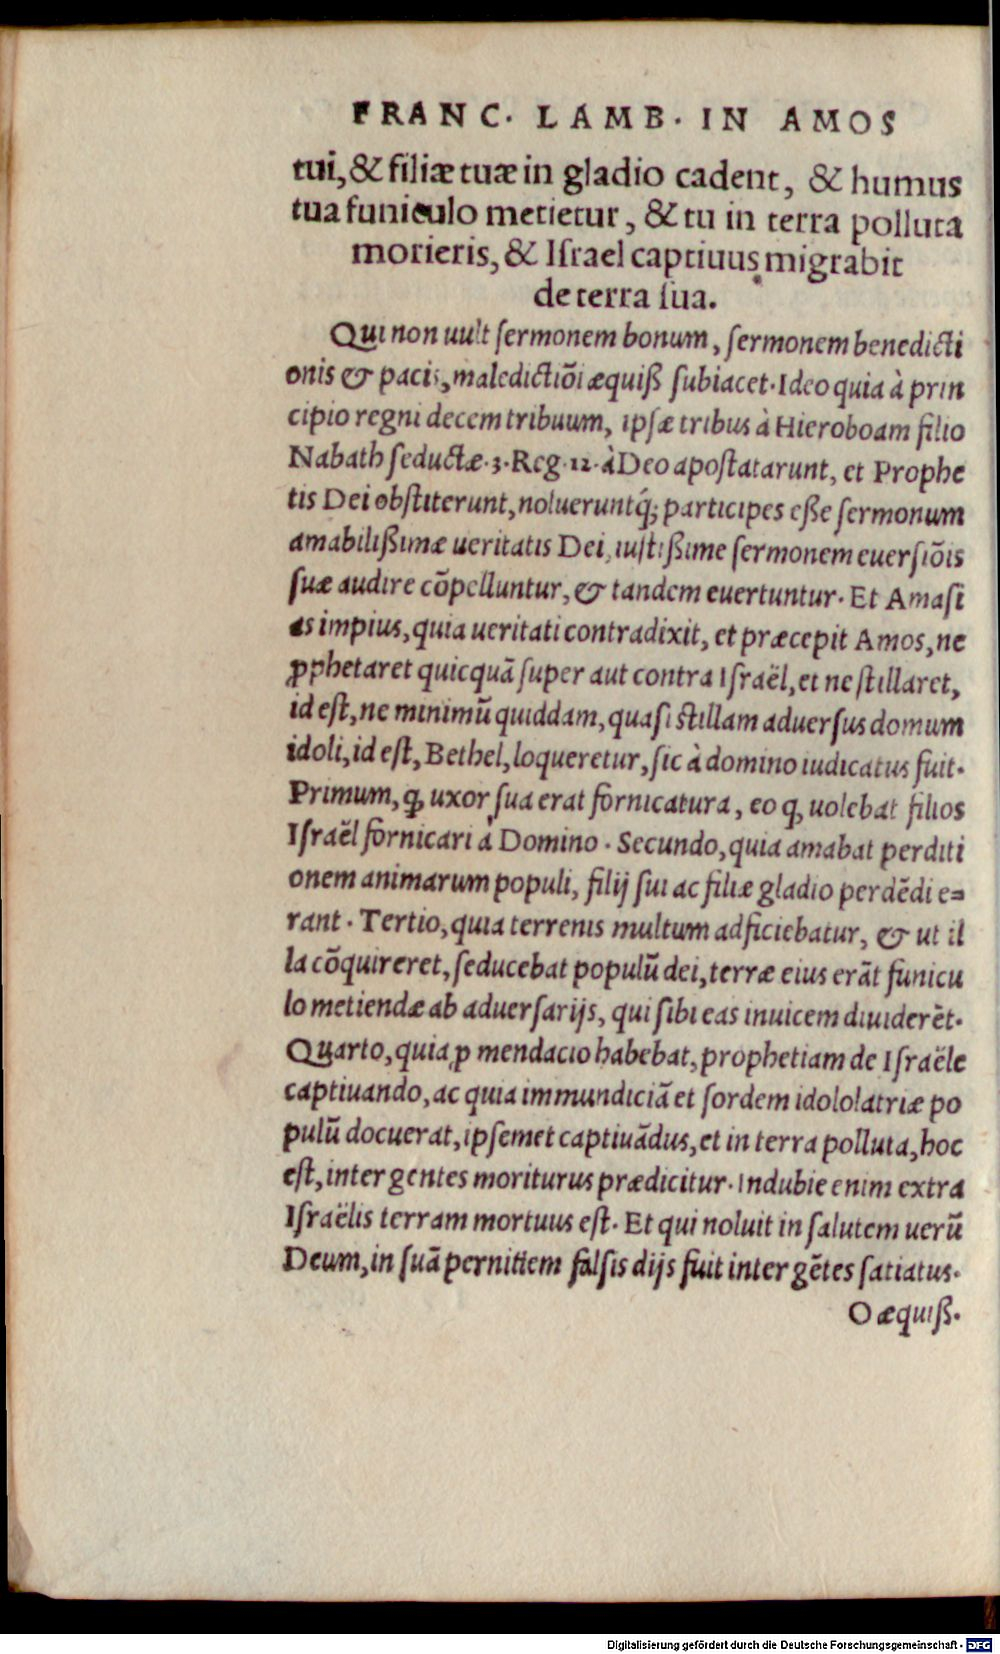 FRANC. LAMB. IN AMOS
tui, & filiæ tuæ in gladio cadent, & humus
tua funiculo metietur, & tu in terra polluta
morieris, & Iſrael captiuus migrabit
de terra ſua.
Qui non uult ſermonem bonum, ſermonem benedicti
onis & pacis, maledictiõi æquiß ſubiacet. Ideo quia à prin
cipio regni decem tribuum, ipſæ tribus à Hieroboam filio
Nabath ſeductæ. 3. Reg. 12. à Deo apoſtatarunt, et Prophe
tis Dei obſtiterunt, nolueruntq́; participes eße ſermonum
amabilißimæ ueritatis Dei, iuſtißime ſermonem euerſiõis
ſuæ audire cõpelluntur, & tandem euertuntur. Et Amaſi
as impius, quia ueritati contradixit, et præcepit Amos, ne
ꝓphetaret quicquã ſuper aut contra Iſraël, et ne ſtillaret,
id eſt, ne minimũ quiddam, quaſi ſtillam aduerſus domum
idoli, id eſt, Bethel, loqueretur, ſic à domino iudicatus fuit.
Primum, ꝙ uxor ſua erat fornicatura, eo ꝙ uolebat filios
Iſraël fornicari à Domino. Secundo, quia amabat perditi
onem animarum populi, filij ſui ac filiæ gladio perdẽdi e=
rant. Tertio, quia terrenis multum adficiebatur, & ut il
la cõquireret, ſeducebat populũ dei, terræ eius erãt funicu
lo metiendæ ab aduerſarijs, qui ſibi eas inuicem diuiderẽt.
Quarto, quia ꝓ mendacio habebat, prophetiam de Iſraële
captiuando, ac quia immundiciã et ſordem idololatriæ po
pulũ docuerat, ipſemet captiuãdus, et in terra polluta, hoc
eſt, inter gentes moriturus prædicitur. Indubie enim extra
Iſraëlis terram mortuus eſt. Et qui noluit in ſalutem uerũ
Deum, in ſuã pernitiem falſis dijs fuit inter gẽtes ſatiatus.
O æquiß.
Digitalisierung gefördert durch die Deutsche Forschungsgemeinschaft - DFG